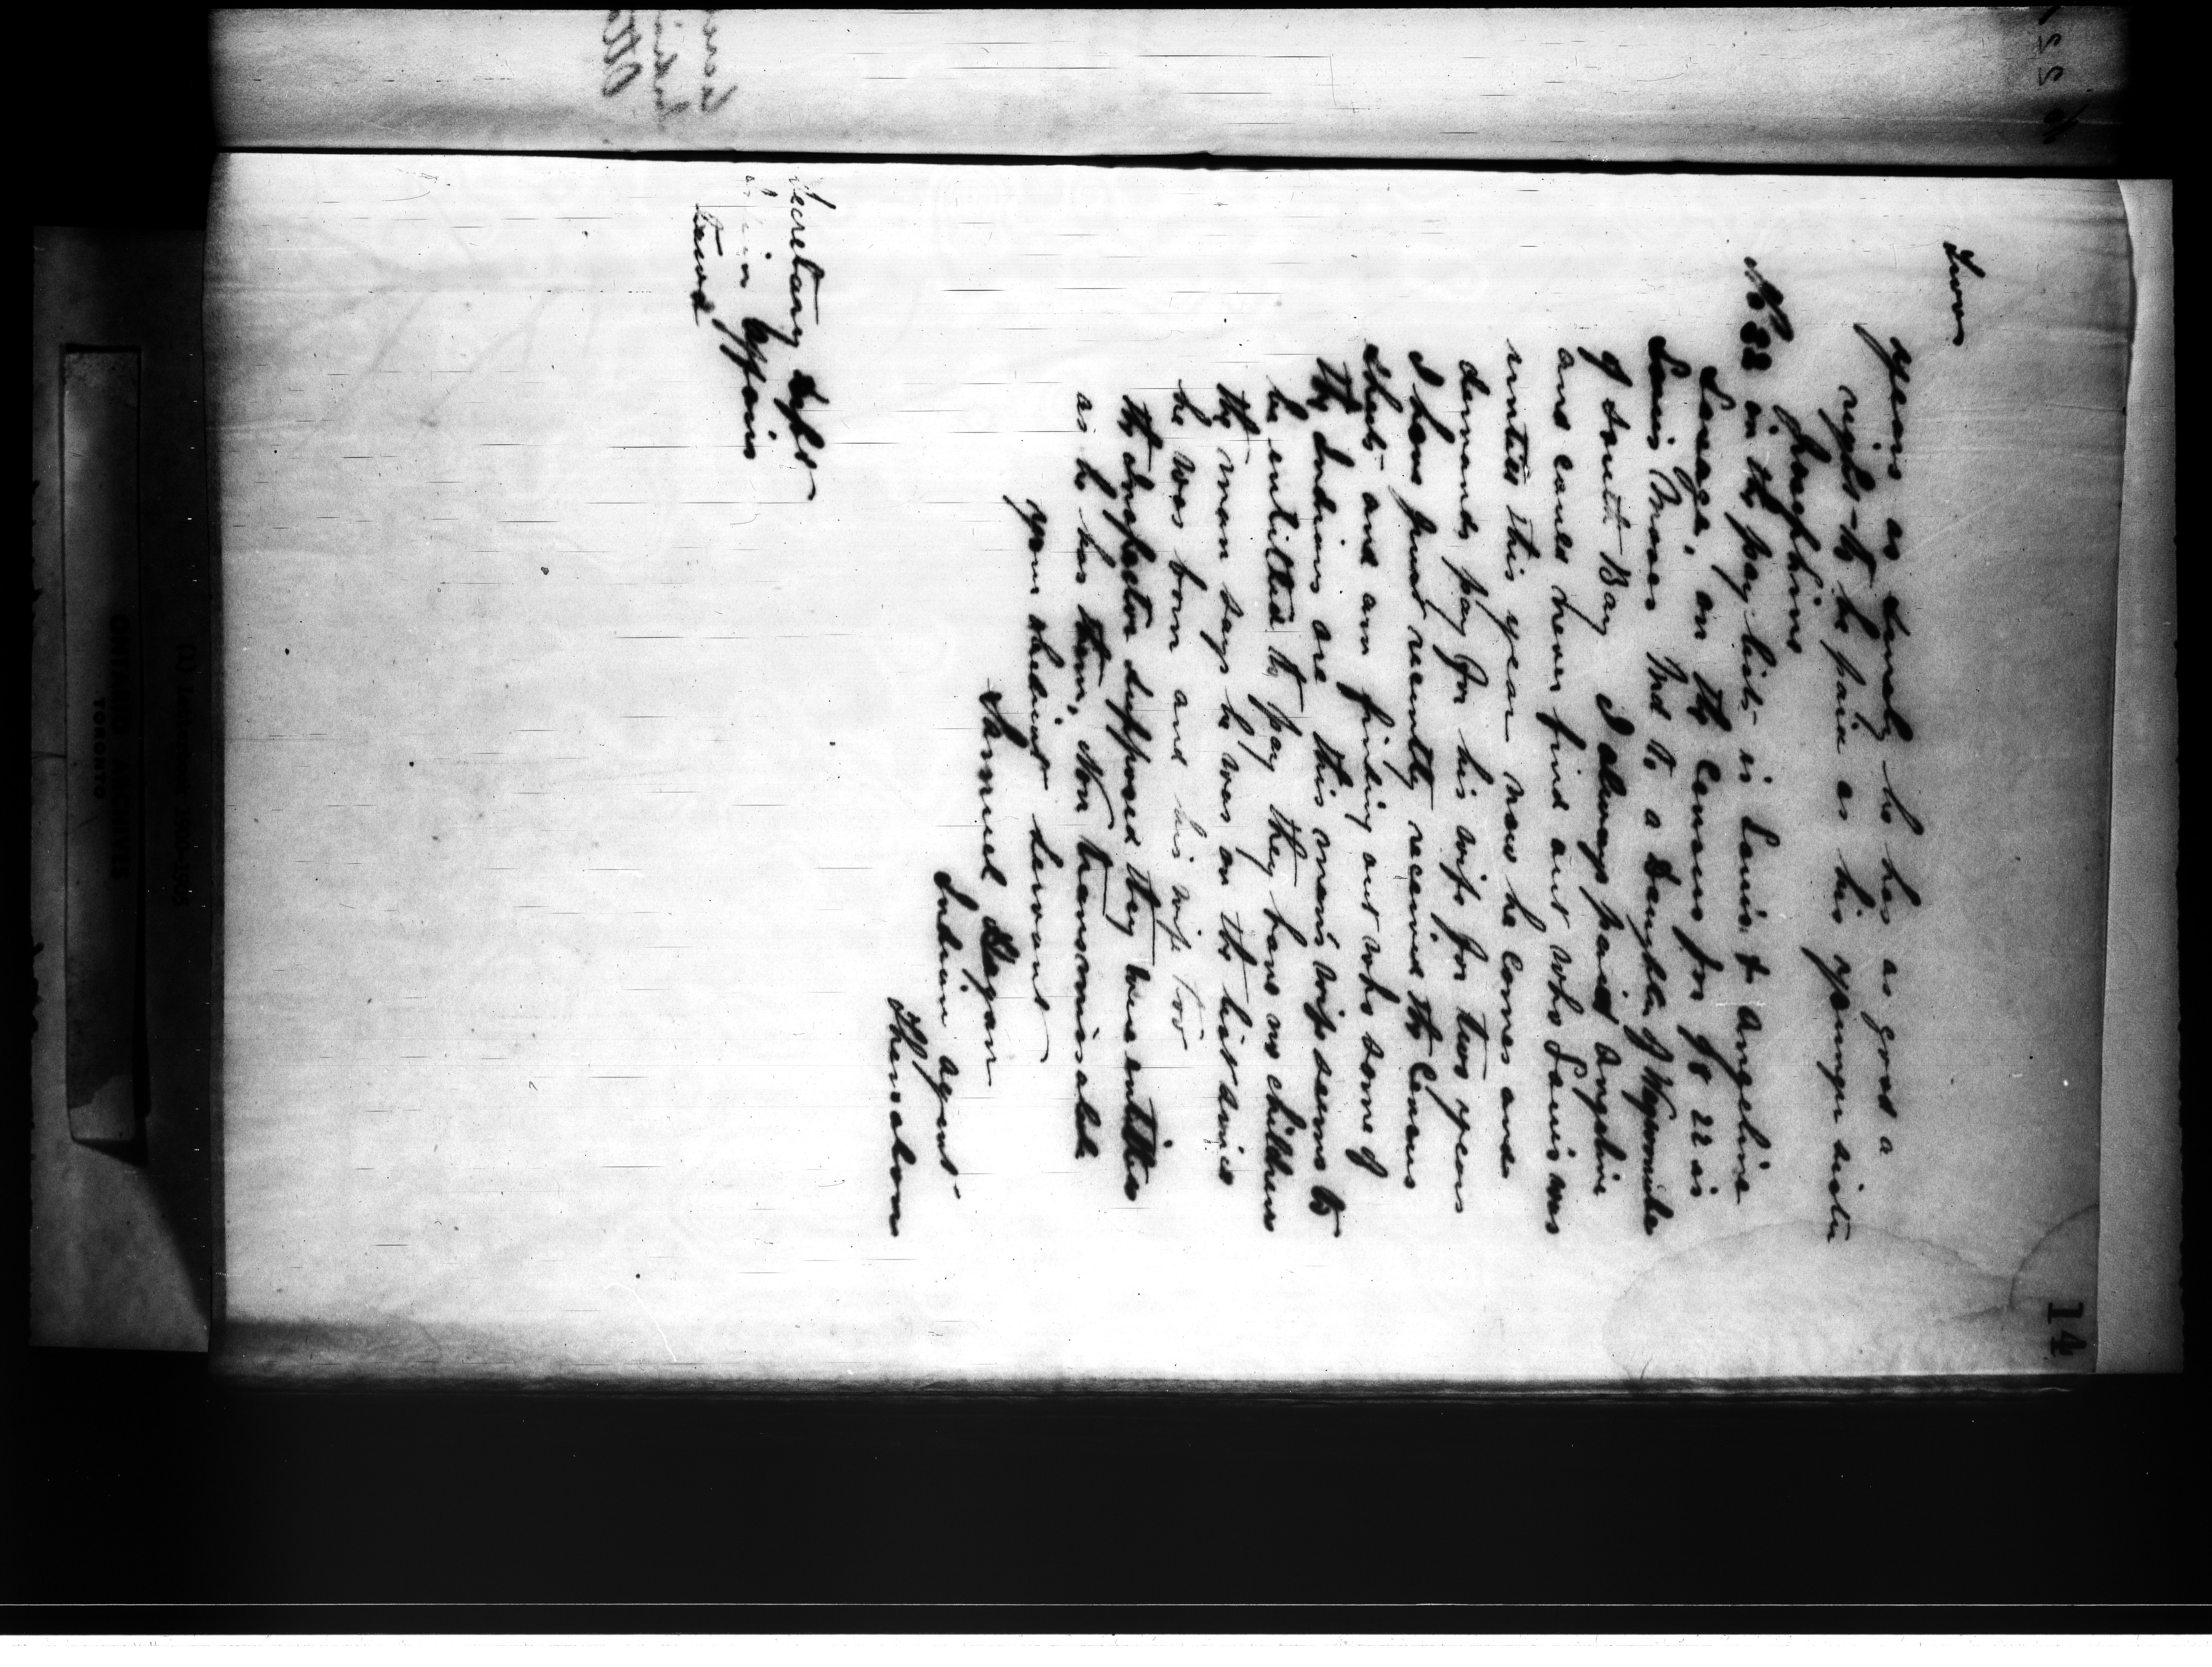 14
Two
years as surely he has as good a
right to be paid as his younger sister
Josephine
No 32 in the pay list is Louis & Angeline
Savage, on the Census for 98 22 is
Louis Moses Md to a Daughter of
of South Bay I always paid Angeline
and could never find out who Louis was
until this year now he comes and
demands pay for his wife for two years
I have just recently received the Census
sheets and am finding out who some of
the Indians are this mans wife seems to
be entitled to pay they have no children
the man says he was on the list since
he was born and his wife too
the Inspector supposed they were entitled
as he has them, Non transmissable
your obedient servant
Samuel Hagan
Indian Agent
Thessalon
Secretary Dept
Indian Affairs
ONTARIO ARCHIVES
TORONTO
(1) Letterbook 1900-1903